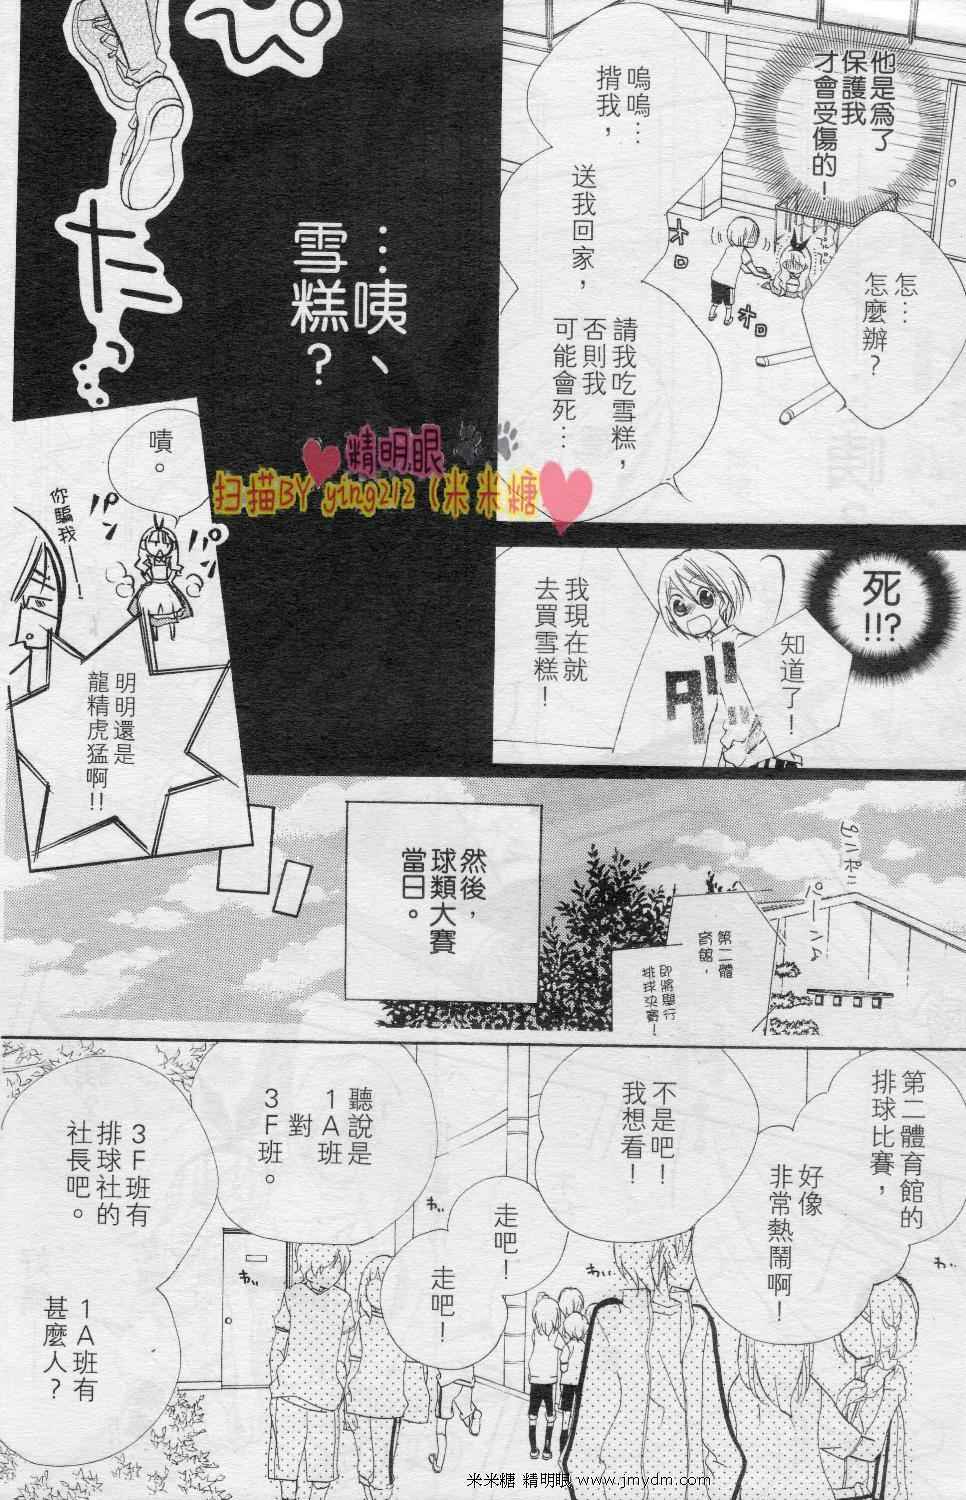 他是為了
保護我
才會受傷的!
怎…
怎麼辦?
嗚嗚…
揹我,
送我回家,
請我吃雪糕,
否則我
可能會死…
オロ
オロ
…咦、
雪糕?
死!!?
知道了!
我現在就
去買雪糕!
嘖。
パン
パン
你騙我—!
明明還是
龍精虎猛啊!!
精明眼
扫描BY ying212(米米糖
然後,
球類大賽
當日。
ピンポン
パーン♪
第二體
育館,
即將舉行
排球決賽!
第二體育館的
排球比賽,
好像
非常熱鬧啊!
不是吧!
我想看!
走吧!
走吧!
聽說是
1A班
對
3F班。
3F班有
排球社的
社長吧。
1A班有
甚麼人?
わい
わい
わい
わい
米米糖 精明眼 www.jmydm.com